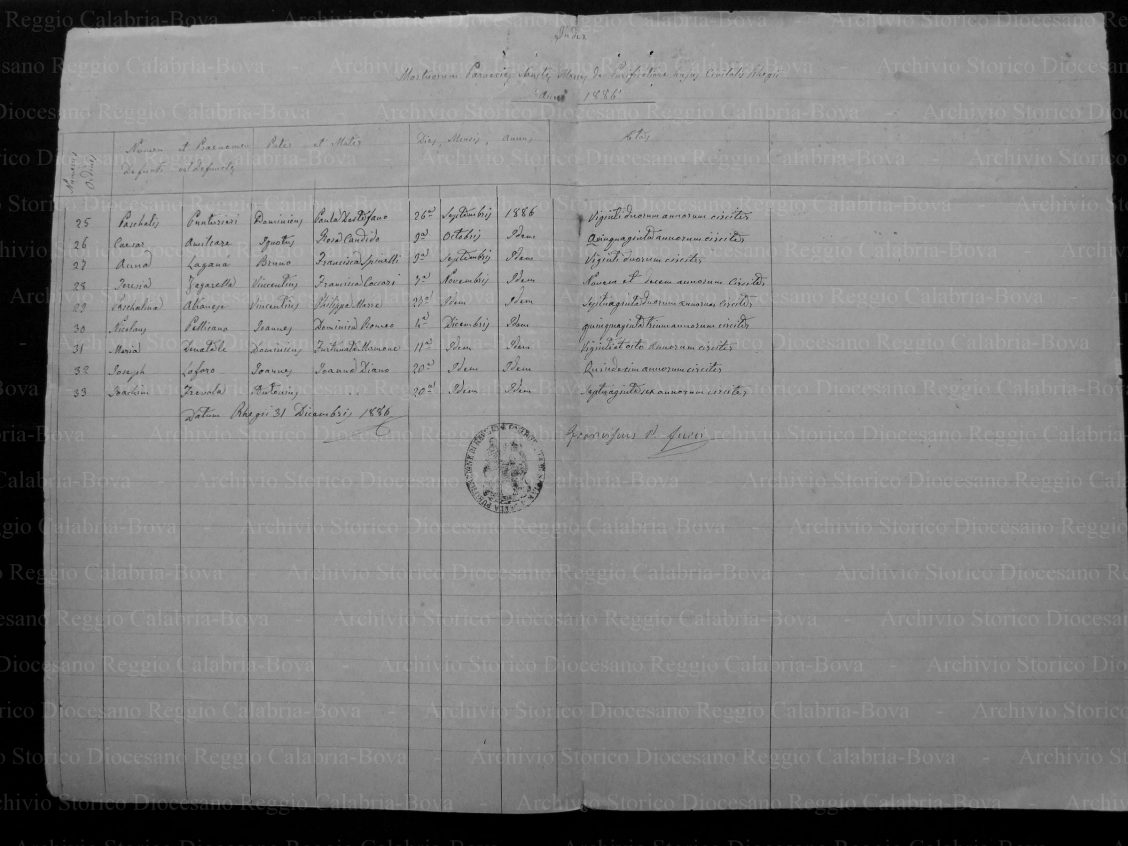 Index
Mortuorum Paroeciæ Sanctæ Mariæ de Purificatione hujus Civitatis Rhegii
Anni 1886
Numerus Ordinis | Nomen et Praenomen Defuncti vel Defunctæ | Pater et Mater | Dies, Mensis, Annus | Ætas
25 Paschalis Punturieri Dominicus Paula 26a Septembris 1886 Viginti duorum annorum circiter
26 Caesar Amilcare Ignotus Rosa Candido 9a Octobris Idem Quinquaginta annorum circiter
27 Anna Laganà Bruno Francisca Spinelli 9a Septembris Idem Viginti duorum circiter
28 Teresia Vincentius Francisca Novembris Idem Novem et decem annorum circiter
29 Paschalina Albanese Vincentius Philippa Marra 23a Idem Idem Septuaginta duorum annorum circiter
30 Nicolaus Pellicano Joannes Dominica Romeo Dicembris Idem quinquaginta trium annorum circiter
31 Maria Dominicus Fortunata 11a Idem Idem Viginti et octo annorum circiter
32 Joseph Loforo Joannes Joanna Diano 20a Idem Idem Quindecim annorum circiter
33 Joachim Trevola Antonius . . 20a Idem Idem Septuaginta sex annorum circiter
Datum Rhegii 31 Dicembris 1886
Archivio Storico Diocesano Reggio Calabria-Bova